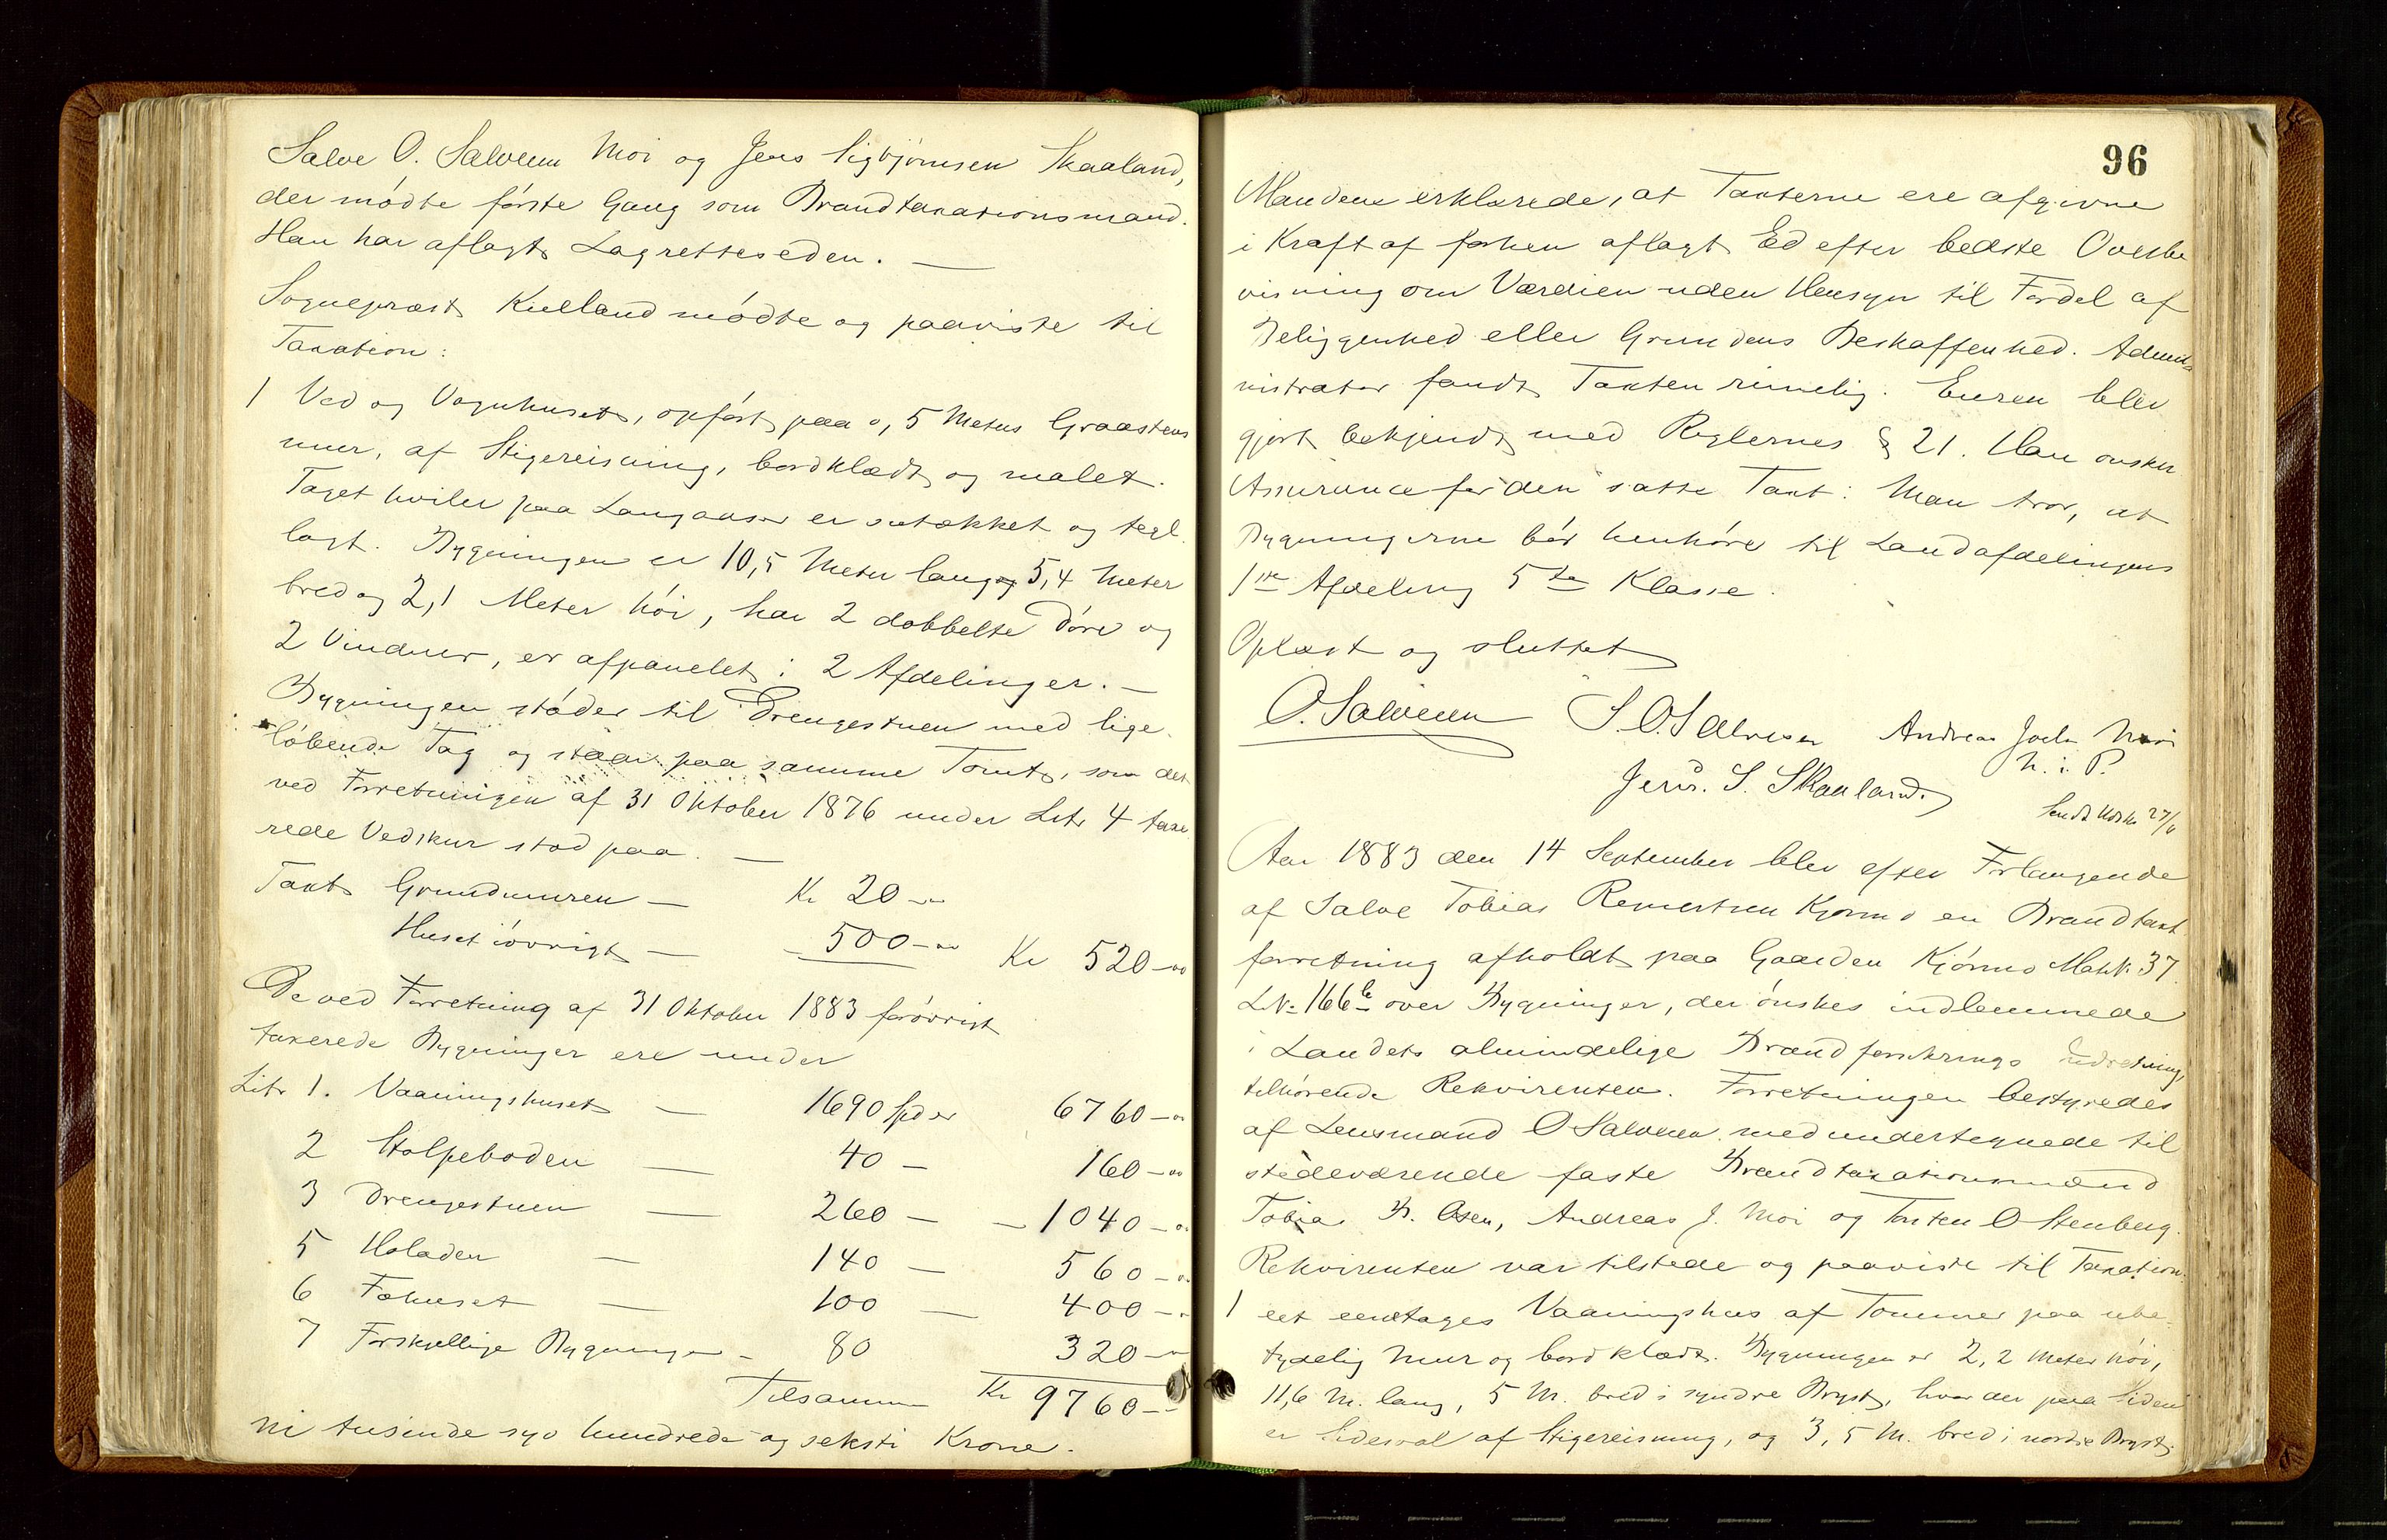 Salve O. Salvesen Moi og Jens Sigbjørnsen Skaaland,
der mødte første Gang som Brandtaxationsmand.
Han har aflagt Lagretteseden. —
Sognepræst Kielland mødte og paaviste til
Taxation:
1 Ved og Vognhuset, opført paa 0,5 Meters Graastens
mur, af Stigereisning, bordklædt og malet.
Taget hviler paa Langaaser er sutækket og tegl
lagt. Bygningen er 10,5 Meter lang og 5,4 Meter
bred og 2,1 Meter høi, har 2 dobbelte Døre og
2 Vinduer, er afpanelet i 2 Afdelinger. —
Bygningen støder til Drengestuen med lige
løbende Tag og staar paa samme Tomt, som det
ved Forretningen af 31 Oktober 1876 under Litr 4 taxe
rede Vedskur stod paa. —
Taxt Grundmuren — Kr 20 -"
Huset iøvrigt — - 500 -" Kr 520 -00
De ved Forretning af 31 Oktober 1883 forøvrigt
taxerede Bygninger ere under
Litr 1. Vaaningshuset — 1690 Spd er 6760 -"
2 Stolpeboden — 40 — 160 -00
3 Drengestuen — 260 — - 1040 -"
5 Høladen — 140 — 560 -"
6 Fæhuset — 100 — 400 -"
7 Forskjellige Bygninger - 80 320 -"
Tilsammen Kr 9760 -"
ni tusinde syv hundrede og seksti Krone.
96
Mændene erklærede, at Taxterne ere afgivne
i Kraft af forhen aflagt Ed efter bedste Overbe
visning om Værdien uden Hensyn til Fordel af
Beliggenhed eller Grundens Beskaffenhed. Admi
nistrator fandt Taxten rimelig. Eieren blev
gjort bekjendt med Reglernes § 21. Han ønsker
Assurance for den satte Taxt. Man tror, at
Bygningerne bør henhøre til Landafdelingens
1ste Afdeling 5te Klasse.
Oplæst og sluttet
O. Salvesen S. O. Salvesen Andreas Joels Moi
Jens. S. Skaaland. m. i. P.
Sendt
Aar 1883 den 14 September blev efter Forlangende
af Salve Tobias Reinertsen Kjørmo en Brandtaxt
forretning afholdt paa Gaarden Kjørmo Matr. 37
L.№ 166b over Bygninger, der ønskes indlemmede
i Landets almindelige Brandforsikrings Indretning,
tilhørende Rekvirenten. Forretningen bestyredes
af Lensmand O Salvesen med undertegnede til
stedeværende faste Brandtaxationsmænd
Tobias B. Osen, Andreas J. Moi og Torsten O Stenberg.
Rekvirenten var tilstede og paaviste til Taxation.
1 eet eentages Vaaningshus af Tømmer paa ube=
tydelig Mur og bordklædt. Bygningen er 2,2 Meter høi,
11,6 M. lang, 5 M. bred i syndre Bryst, hvor der paa Siden
er Sidesval af Stigereisning, og 3,5 M. bred i nordre Bryst,